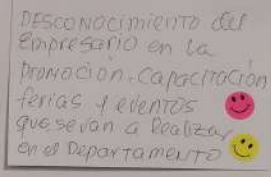 DESCONOCIMIENTO del
Empresario en la
PROMOCIÓN. CAPACITACIÓN
ferias y eventos
que se van a Realizar
en el DEPARTAMENTO